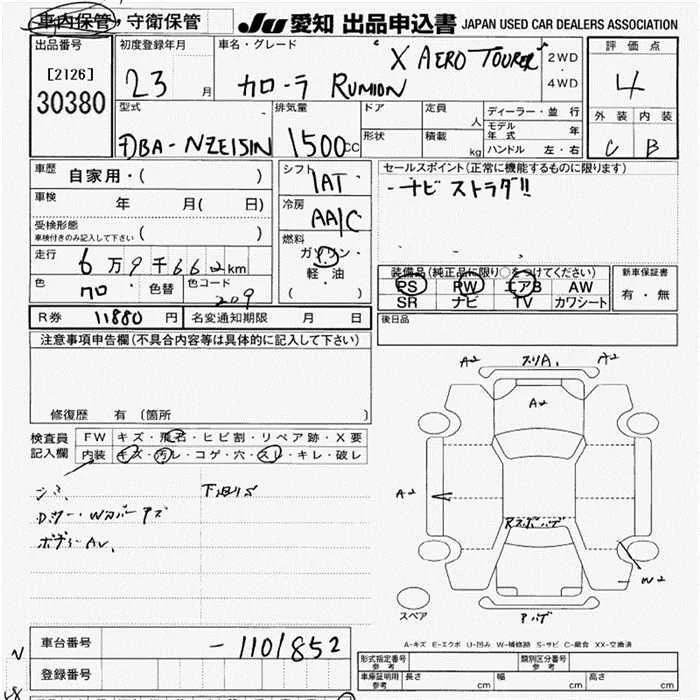 車内保管・守衛保管
JU 愛知 出品申込書 JAPAN USED CAR DEALERS ASSOCIATION
出品番号
[2126]
30380
初度登録年月
23 月
車名・グレード
"X AERO TOURER"
カローラ RUMION
2WD
・
4WD
評価点
4
外装 内装
C B
型式
DBA-NZE151N
排気量
1500cc
ドア
形状
定員
人
積載
kg
ディーラー・並行
モデル年式 年
ハンドル 左・右
車歴
自家用・( )
車検 年 月( 日)
受検形態
車検付きのみ記入して下さい ( )
走行
6万9千662km
色 クロ 色替 色コード 209
シフト
IAT
冷房
AA/C
燃料
ガソリン・
軽・油
( )
セールスポイント(正常に機能するものに限ります)
ナビ ストラダ!!
装備品(純正品に限り○をつけてください)
PS PW エアB AW
SR ナビ TV カワシート
新車保証書
有・無
後日品
R券 11880 円 名変通知期限 月 日
注意事項申告欄(不具合内容等は具体的に記入して下さい)
修復歴 有 〔箇所 〕
検査員
記入欄
FW キズ・飛石・ヒビ割・リペア跡・X要
内装 キズ・汚レ・コゲ・穴・スレ・キレ・破レ
A2 スリA. A2
A2
A2
W2
スペア
A-キズ E-エクボ U-凹み W-補修跡 S-サビ C-腐食 XX-交換済
車台番号 -1101852
登録番号
形式指定番号
参考
類別区分番号
参考
車庫証明用
参考
長さ cm 幅 cm 高さ cm